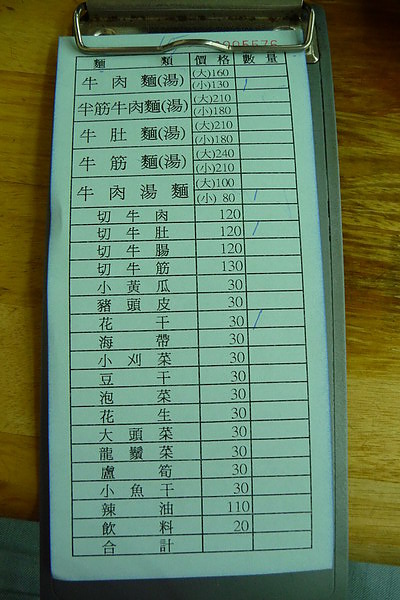 005576
麵 類 價 格 數 量
牛 肉 麵(湯) (大)160
(小)130 /
半筋牛肉麵(湯) (大)210
(小)180
牛 肚 麵(湯) (大)210
(小)180
牛 筋 麵(湯) (大)240
(小)210
牛 肉 湯 麵 (大)100
(小) 80 /
切 牛 肉 120
切 牛 肚 120 /
切 牛 腸 120
切 牛 筋 130
小 黃 瓜 30
豬 頭 皮 30
花 干 30 /
海 帶 30
小 刈 菜 30
豆 干 30
泡 菜 30
花 生 30
大 頭 菜 30
龍 鬚 菜 30
盧 筍 30
小 魚 干 30
辣 油 110
飲 料 20
合 計